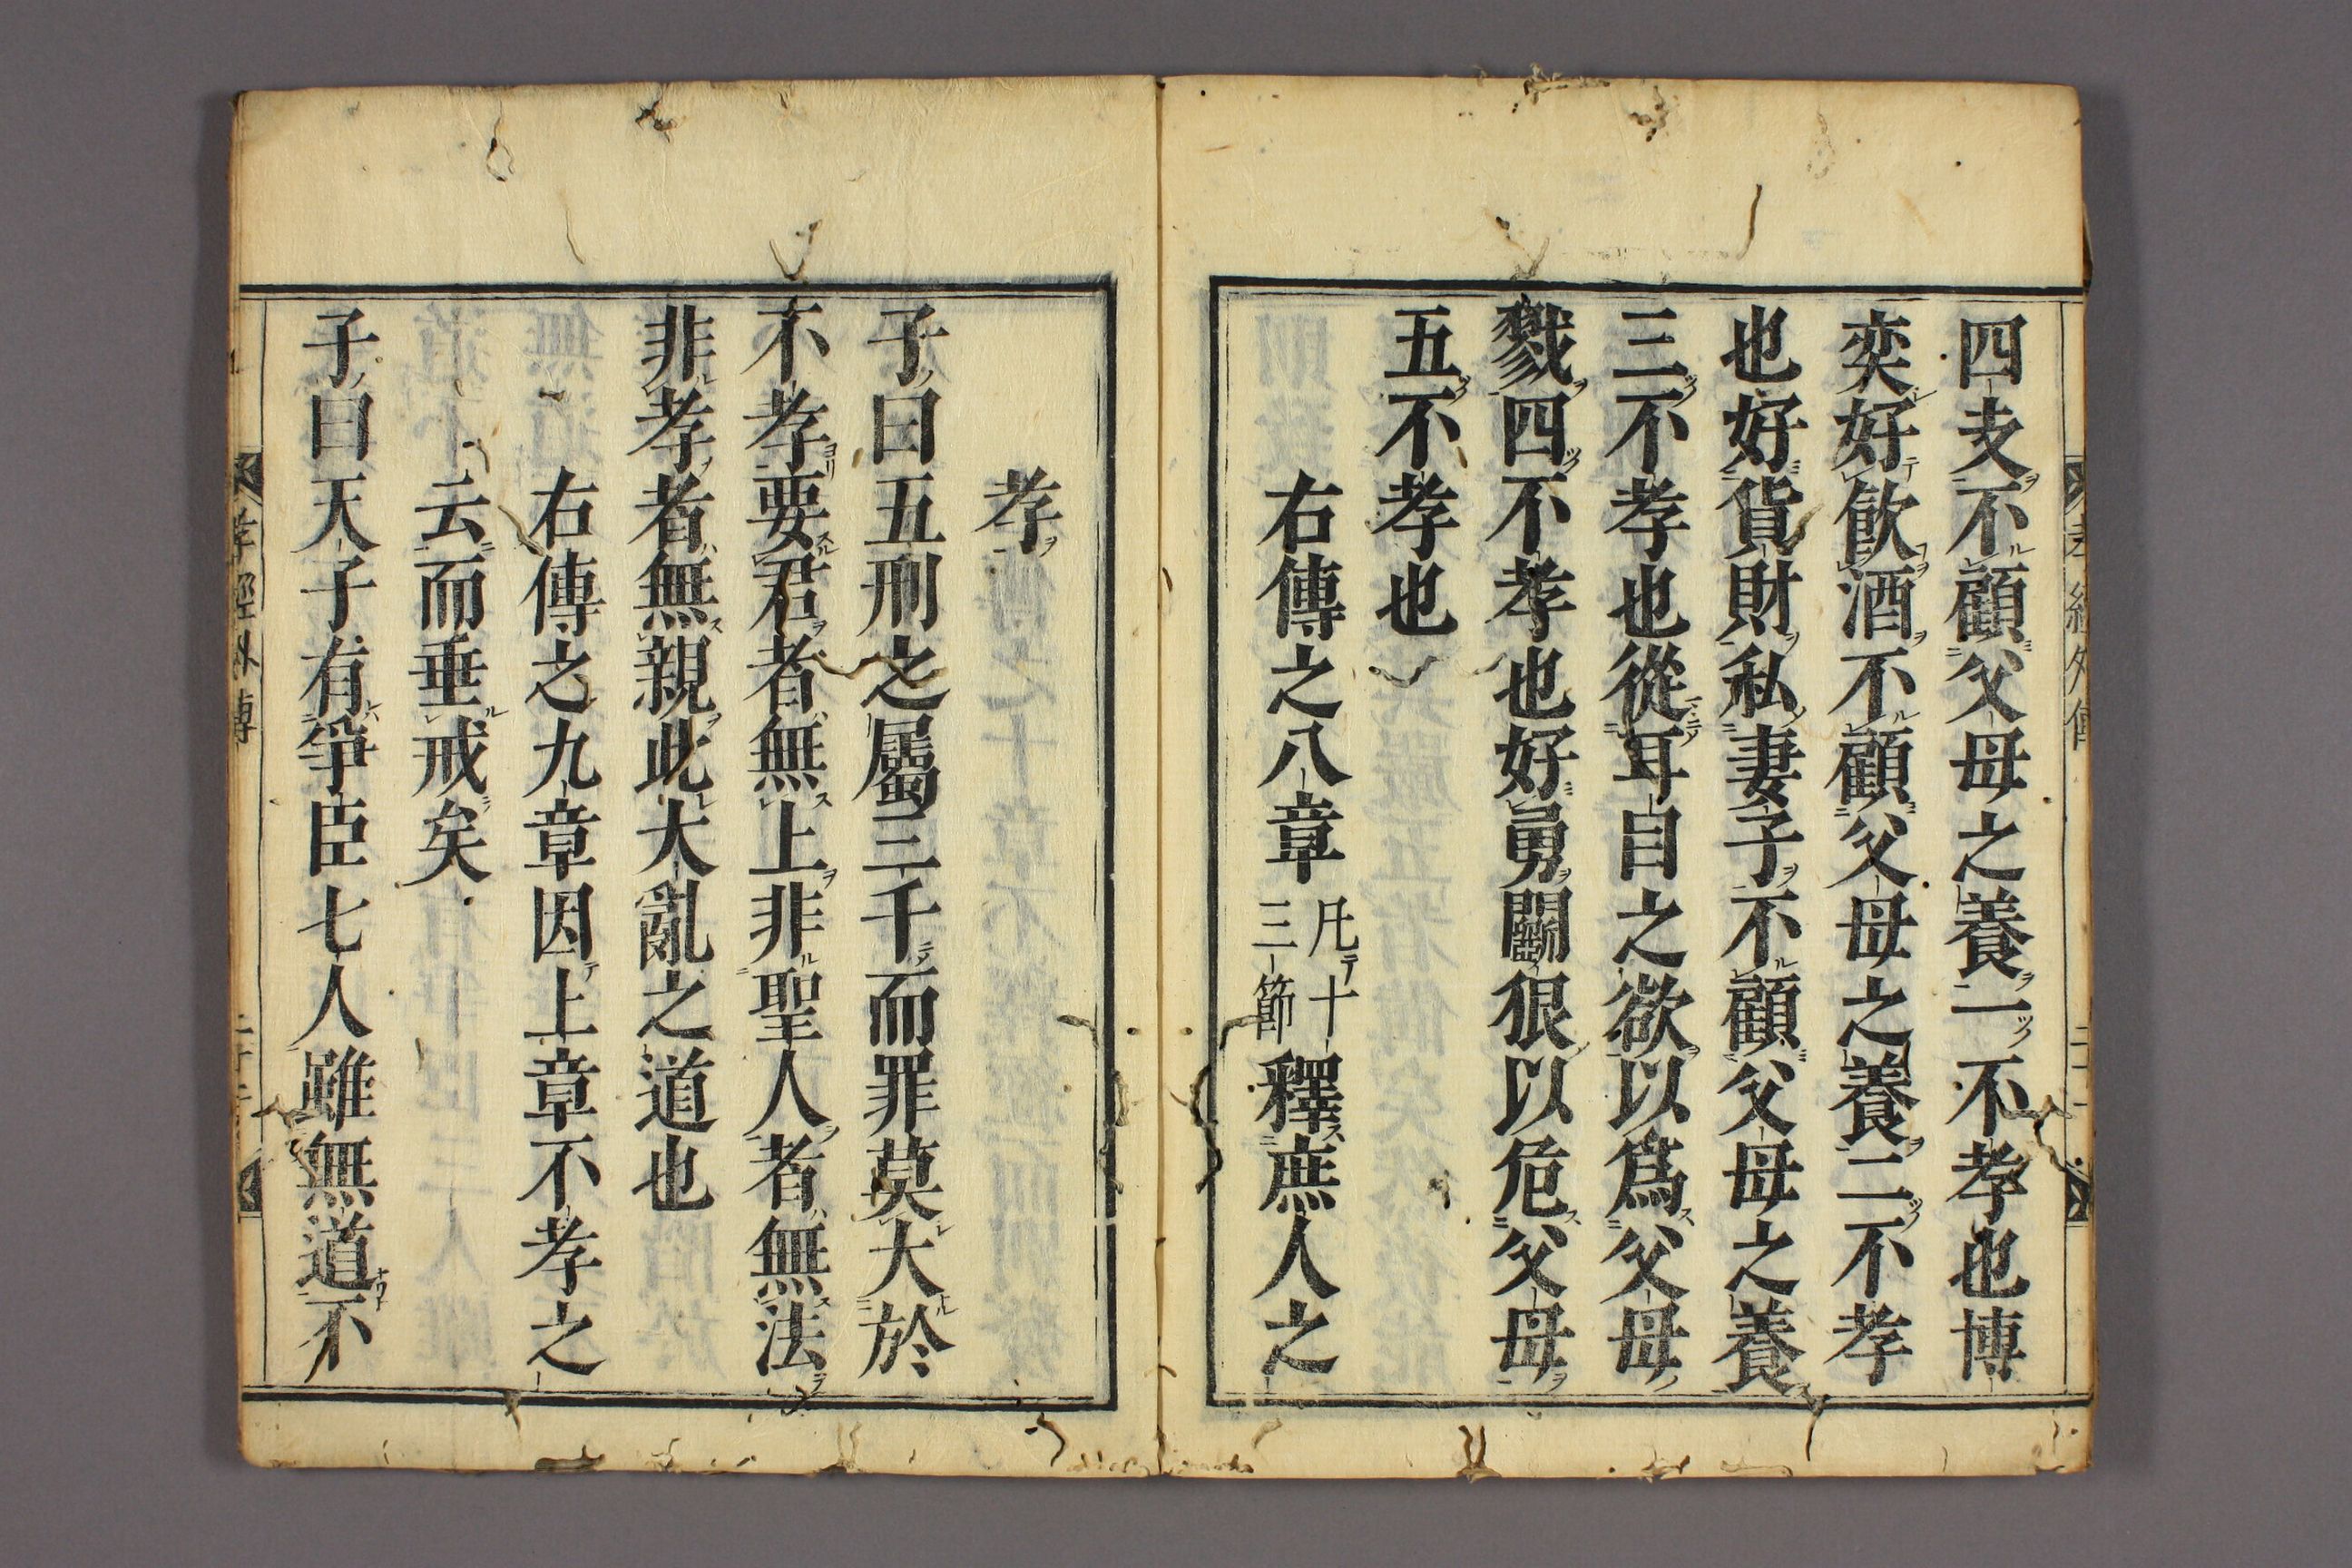 四支不顧父母之養一不孝也博
奕好飮酒不顧父母之養二不孝
也好貨財私妻子不顧父母之養
三不孝也從耳目之欲以爲父母
戮四不孝也好勇鬬狠以危父母
五不孝也
右傳之八章凡十三節釋庶人之
孝
子曰五刑之屬三千而罪莫大於
不孝要君者無上非聖人者無法
非孝者無親此大亂之道也
右傳之九章因上章不孝之
云而垂戒矣
子曰天子有爭臣七人雖無道不
孝經外傳